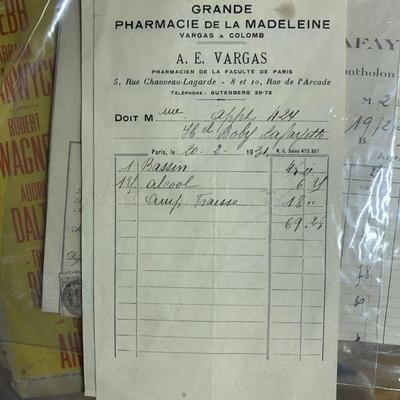 GRANDE
PHARMACIE DE LA MADELEINE
VARGAS & COLOMB
A. E. VARGAS
PHARMACIEN DE LA FACULTÉ DE PARIS
5, Rue Chauveau-Lagarde - 8 et 10, Rue de l'Arcade
TÉLÉPHONE: GUTENBERG 39-75
DOIT M me appt 424
Paris, le 20-2-1931 R. C. Seine 473.867
1 Bassin 45 "
alcool 6
18 "
69.25
EBB
BARBARA
ANWYCK
ROBERT
WAGNER
AUDREY
DAL
AFAY
ontholon
M. 2
19/2/
B.
78
39